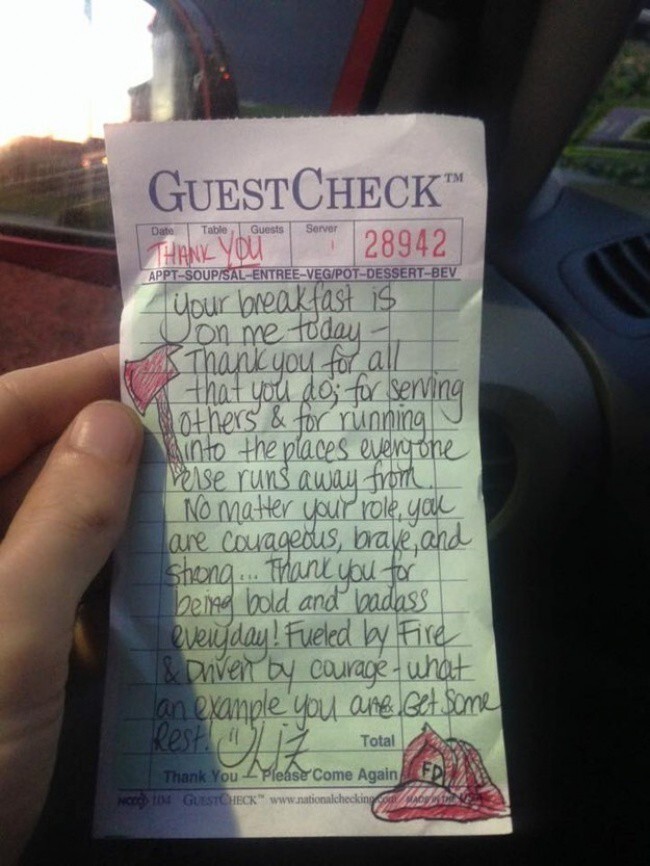 GUESTCHECK™
Date Table Guests Server
THANK YOU 28942
APPT-SOUP/SAL-ENTREE-VEG/POT-DESSERT-BEV
your breakfast is
on me today -
Thank you for all
that you do; for serving
others & for running
into the places everyone
else runs away from.
No matter your role, you
are courageous, brave, and
strong... Thank you for
being bold and badass
everyday! Fueled by Fire
& Driven by courage - what
an example you are. Get Some
Rest! " Liz
Total
FD
Thank You Please Come Again
104 GUESTCHECK™ www.nationalchecking MADE IN THE USA